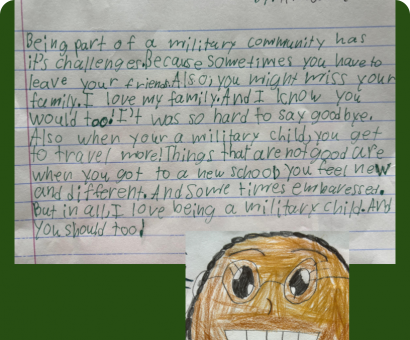 Being part of a military community has
it's challenges. Because sometimes you have to
leave your friends. Also, you might miss your
family. I love my family. And I know you
would too! It was so hard to say goodbye.
Also when your a military child, you get
to travel more! Things that are not good are
when you got to a new school you feel new
and different. And some times embaressed.
But in all, I love being a military child. And
you should too!